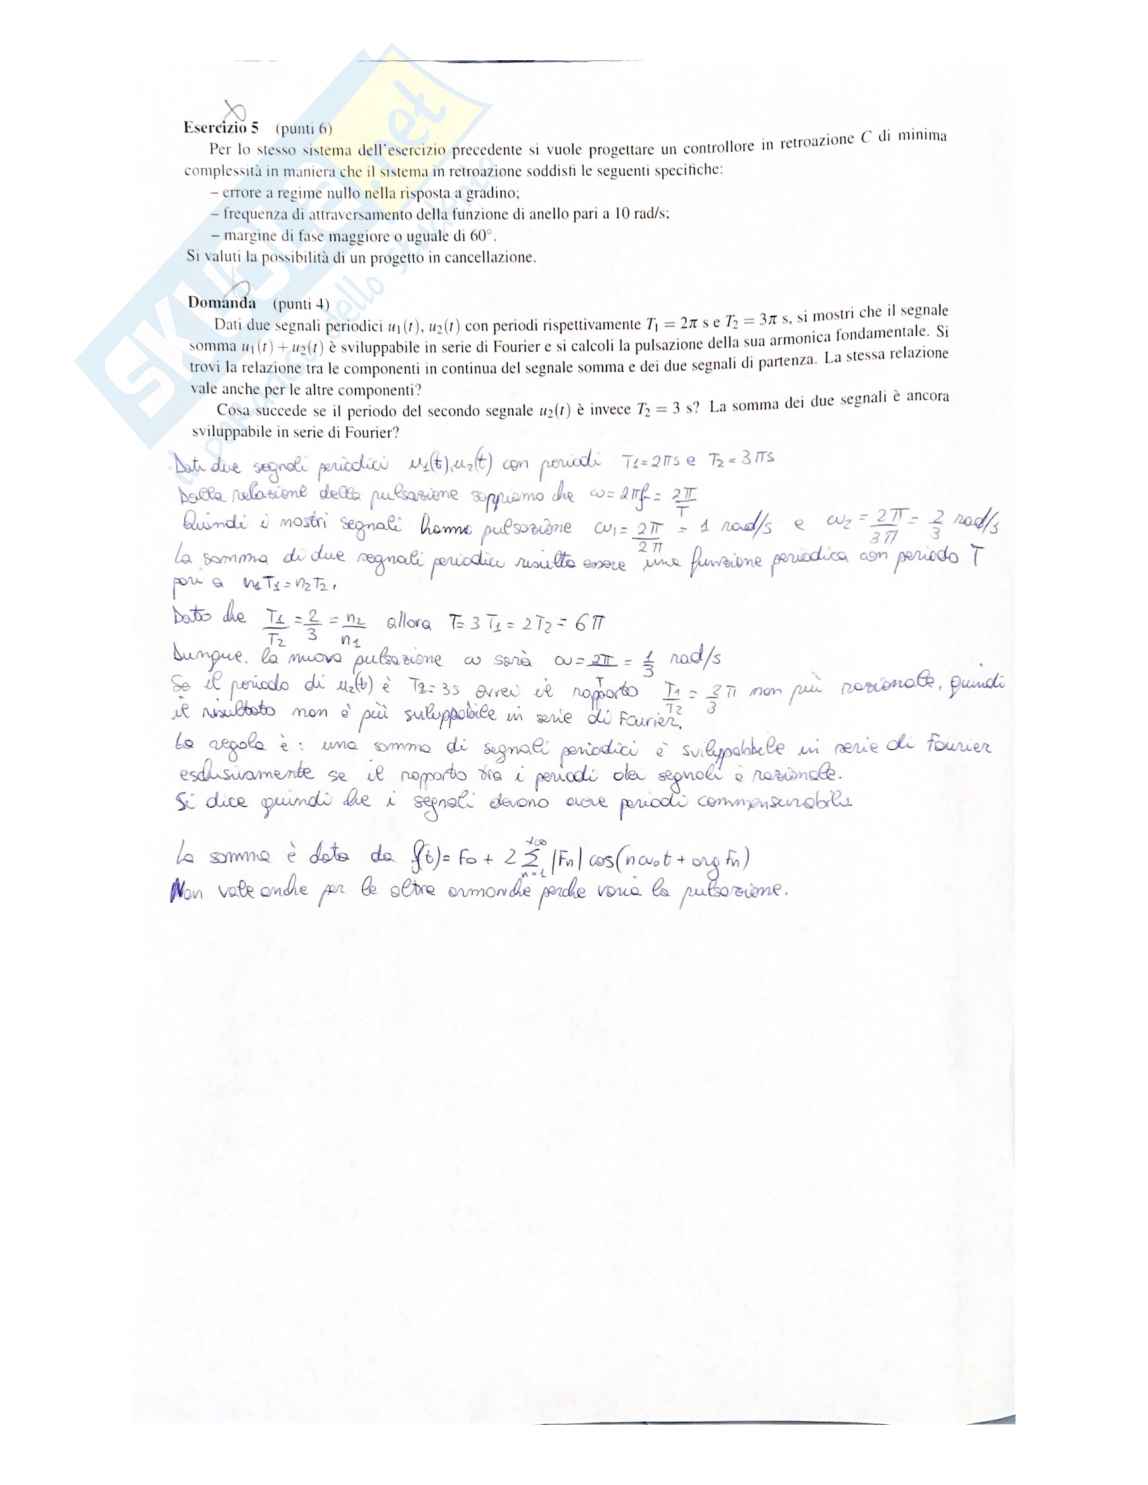 Esercizio 5 (punti 6)
Per lo stesso sistema dell'esercizio precedente si vuole progettare un controllore in retroazione C di minima
complessità in maniera che il sistema in retroazione soddisfi le seguenti specifiche:
– errore a regime nullo nella risposta a gradino;
– frequenza di attraversamento della funzione di anello pari a 10 rad/s;
– margine di fase maggiore o uguale di 60°.
Si valuti la possibilità di un progetto in cancellazione.
Domanda (punti 4)
Dati due segnali periodici u₁(t), u₂(t) con periodi rispettivamente T₁ = 2π s e T₂ = 3π s, si mostri che il segnale
somma u₁(t) + u₂(t) è sviluppabile in serie di Fourier e si calcoli la pulsazione della sua armonica fondamentale. Si
trovi la relazione tra le componenti in continua del segnale somma e dei due segnali di partenza. La stessa relazione
vale anche per le altre componenti?
Cosa succede se il periodo del secondo segnale u₂(t) è invece T₂ = 3 s? La somma dei due segnali è ancora
sviluppabile in serie di Fourier?
Dati due segnali periodici u₁(t), u₂(t) con periodi T₁=2πs e T₂=3πs
Dalla relazione della pulsazione sappiamo che ω=2πf=2π/T
Quindi i nostri segnali hanno pulsazione ω₁=2π/2π = 1 rad/s e ω₂=2π/3π = 2/3 rad/s
La somma di due segnali periodici risulta essere una funzione periodica con periodo T
pari a n₁T₁=n₂T₂.
Dato che T₁/T₂=2/3=n₂/n₁ allora T=3T₁=2T₂=6π
Dunque, la nuova pulsazione ω sarà ω=2π/T=1/3 rad/s
Se il periodo di u₂(t) è T₂=3s avrei il rapporto T₁/T₂=2/3π non più razionale, quindi
il risultato non è più sviluppabile in serie di Fourier.
La regola è: una somma di segnali periodici è sviluppabile in serie di Fourier
esclusivamente se il rapporto tra i periodi dei segnali è razionale.
Si dice quindi che i segnali devono avere periodi commensurabili
La somma è data da f(t)=F₀ + 2 Σ_{n=1}^{+∞} |Fn| cos(nω₀t + arg Fn)
Non vale anche per le altre armoniche perche varia la pulsazione.